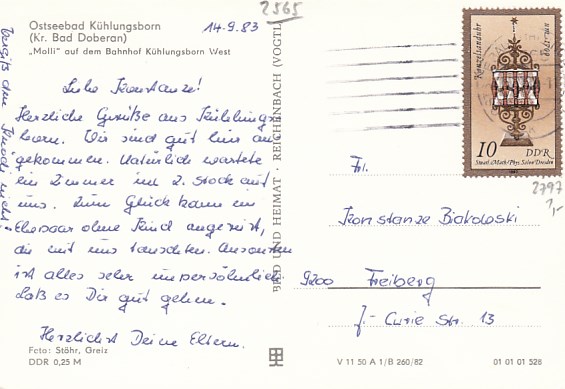 2565
14.9.83
Ostseebad Kühlungsborn
(Kr. Bad Doberan)
„Molli" auf dem Bahnhof Kühlungsborn West
Liebe Konstanze!
Herzliche Grüße aus Kühlungs
born. Wir sind gut hier an
gekommen. Natürlich wartete
ein Zimmer im 2. Stock auf
uns. Zum Glück kam ein
Ehepaar ohne Kind angereist,
die mit uns tauschten. Ansonsten
ist alles sehr unpersönlich.
Laß es Dir gut gehen.
Herzlichst Deine Eltern.
vergiß den nicht
Foto: Stöhr, Greiz
DDR 0,25 M
BILD UND HEIMAT · REICHENBACH (VOGTL
Kanzeluhr
um 1700
10 DDR
Staatl. Math./Phys. Salon/Dresden
2797
1,-
Frl.
Konstanze Biakowski
9200 Freiberg
J.-Curie Str. 13
V 11 50 A 1/B 260/82
01 01 01 528